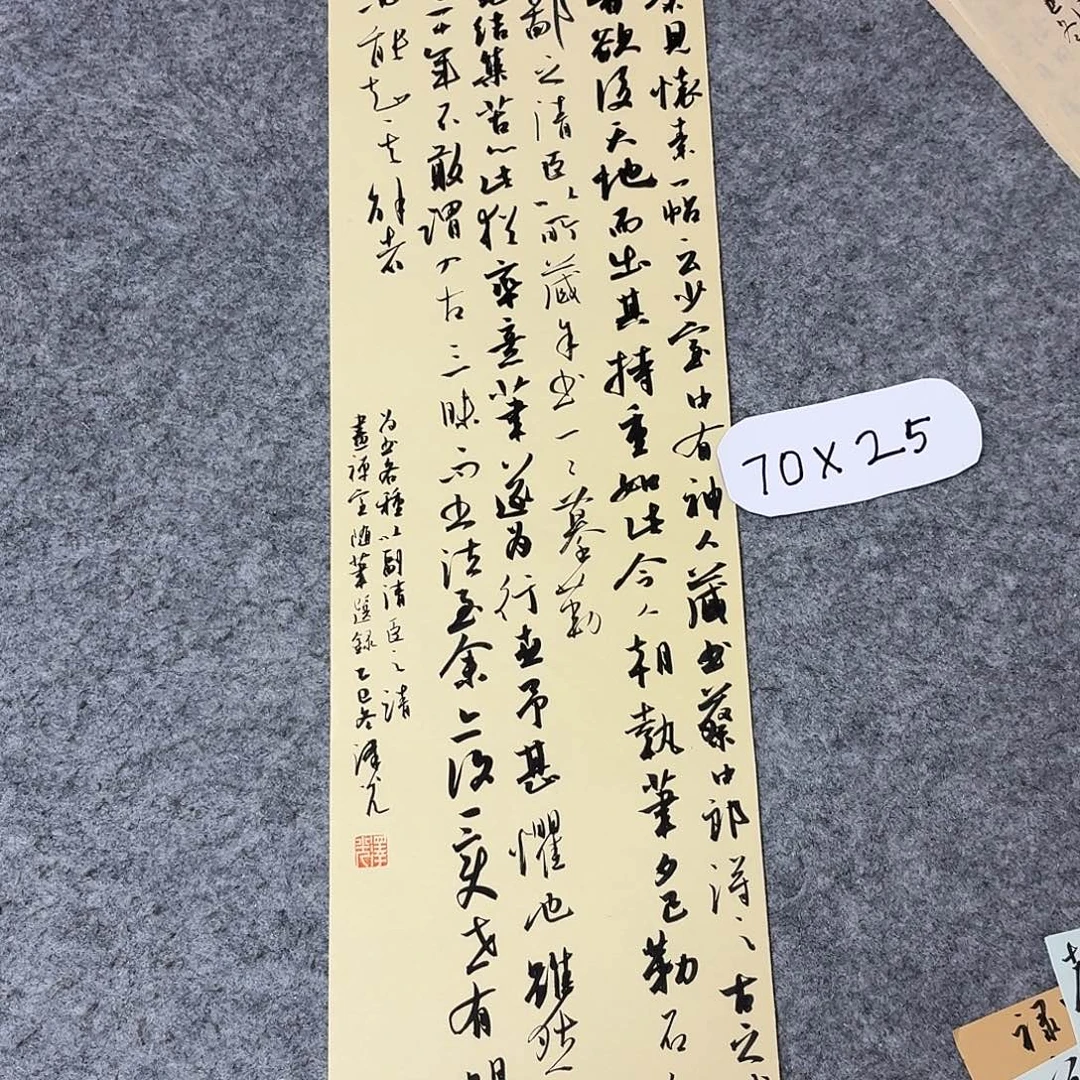 余見懷素一帖云少室中有神人藏書蔡中郎得之古之
欲後天地而出其持重如此今人朝執筆夕已勒石
鄙之清臣以所藏余書一一摹勒
結集苦心此猶率意筆遂為行世予甚懼也雖然
二十年不敢謂入古三昧而書法至余亦復一變世有明
能知其解者
為書各種以副清臣之請
畫禪室隨筆選錄乙巳冬澤光
70×25